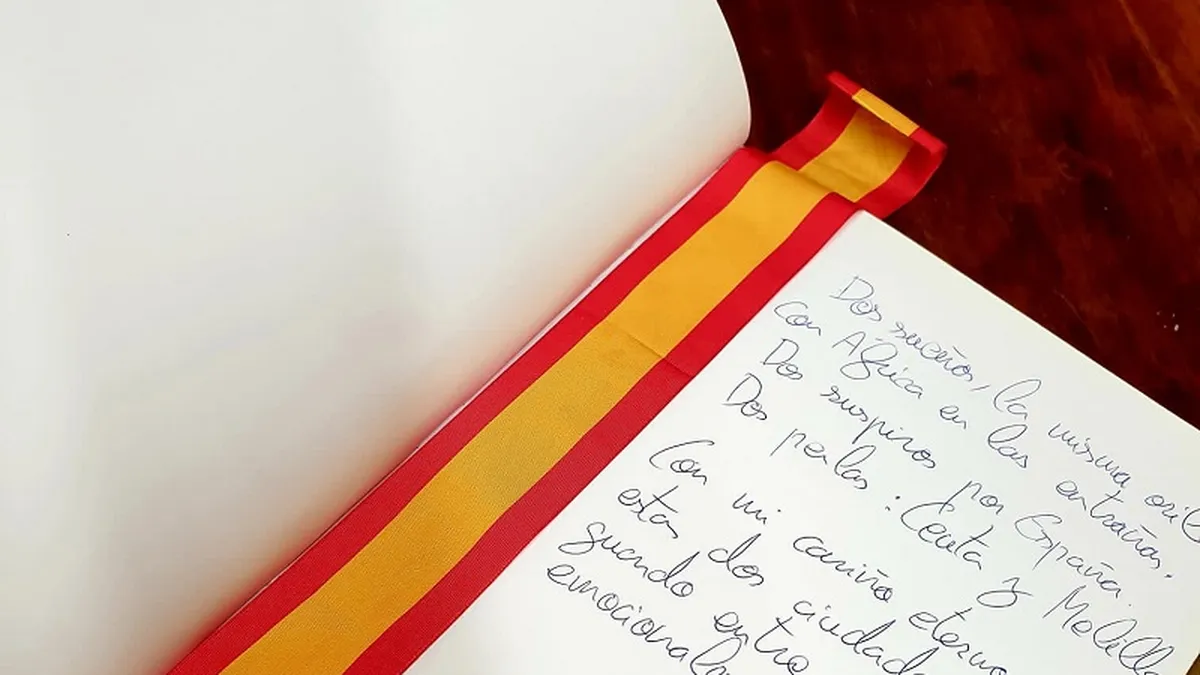 Dos sueños, la misma oril
con África en las entrañas.
Dos suspiros por España.
Dos perlas: Ceuta y Melilla
Con mi cariño eterno
estas dos ciudad
guardo entre
emocional